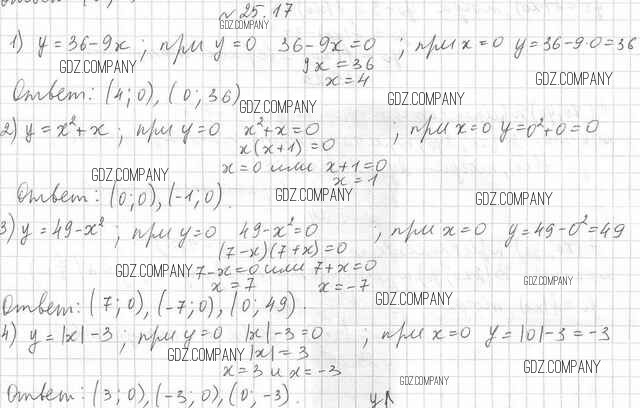 № 25.17
GDZ.COMPANY
1) y = 36-9x ; при y=0 36-9x=0 ; при x=0 y=36-9·0=36
9x = 36
GDZ.COMPANY
x = 4
GDZ.COMPANY
Ответ: (4; 0), (0; 36)
GDZ.COMPANY
GDZ.COMPANY
2) y = x²+x ; при y=0 x²+x=0 ; при x=0 y=0²+0=0
x(x+1)=0
GDZ.COMPANY
x=0 или x+1=0
x = 1
Ответ: (0; 0), (-1; 0).
GDZ.COMPANY
GDZ.COMPANY
3) y = 49-x² ; при y=0 49-x²=0 ; при x=0 y=49-0²=49
(7-x)(7+x)=0
GDZ.COMPANY
7-x=0 или 7+x=0
GDZ.COMPANY
x=7 x=-7
GDZ.COMPANY
Ответ: (7; 0), (-7; 0), (0; 49).
4) y = |x|-3 ; при y=0 |x|-3=0 ; при x=0 y=|0|-3=-3
GDZ.COMPANY
|x| = 3
GDZ.COMPANY
x = 3 и x = -3
GDZ.COMPANY
Ответ: (3; 0), (-3; 0), (0; -3).
y